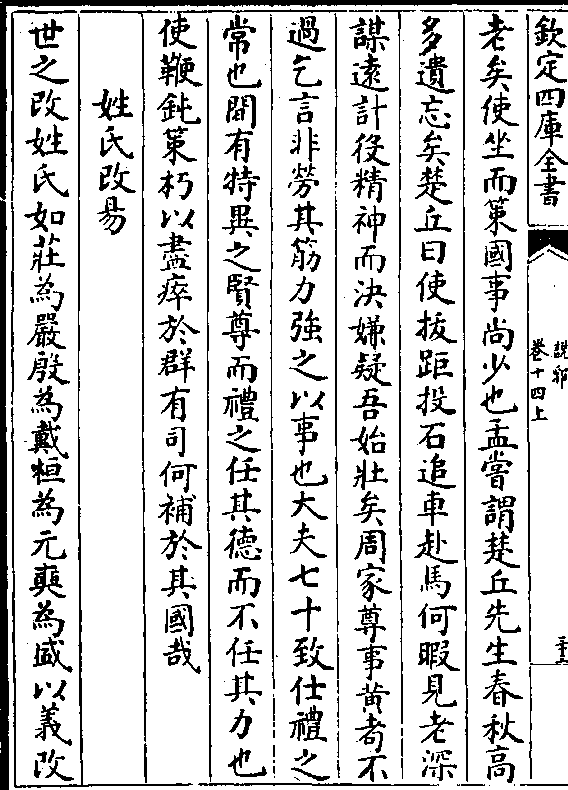 欽定四庫全書
說郛
卷十四上
老矣使坐而策國事尚少也孟嘗謂楚丘先生春秋高
多遺忘矣楚丘曰使拔距投石追車赴馬何暇見老深
謀遠計役精神而決嫌疑吾始壯矣周家尊事黄耈不
過乞言非勞其筋力強之以事也大夫七十致仕禮之
常也間有特異之賢尊而禮之任其德而不任其力也
使鞭鈍策朽以盡瘁於群有司何補於其國哉
姓氏改易
世之改姓氏如莊為嚴殷為戴桓為元奭為盛以義改